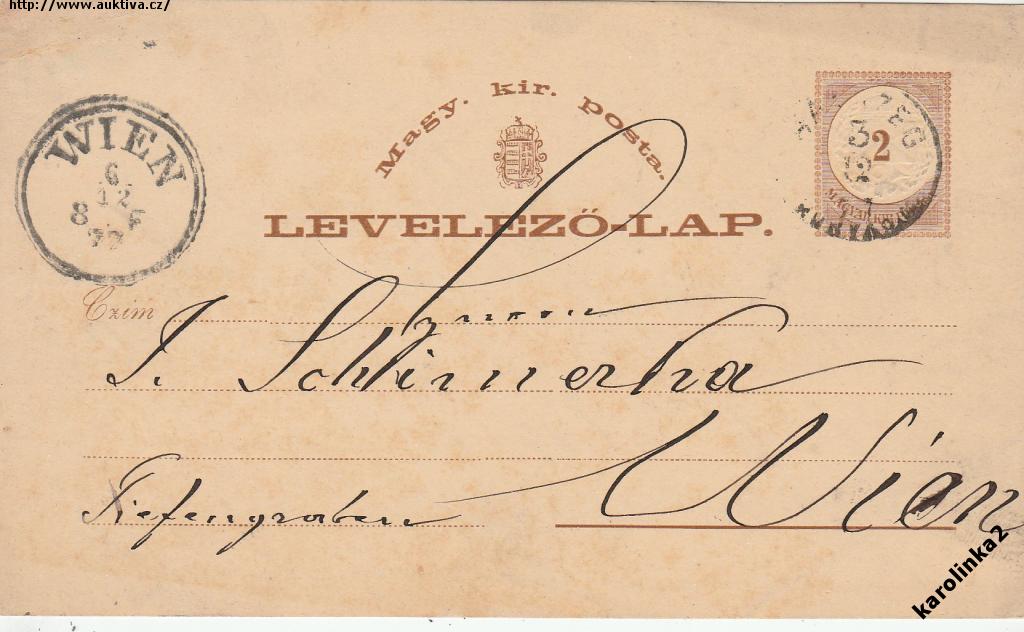 http://www.auktiva.cz/
Magy. kir. posta.
LEVELEZŐ-LAP.
2
WIEN
6
12
8 F
72
3
12
Czim
J. Schimerka
Wien
Tiefengraben
karolinka2